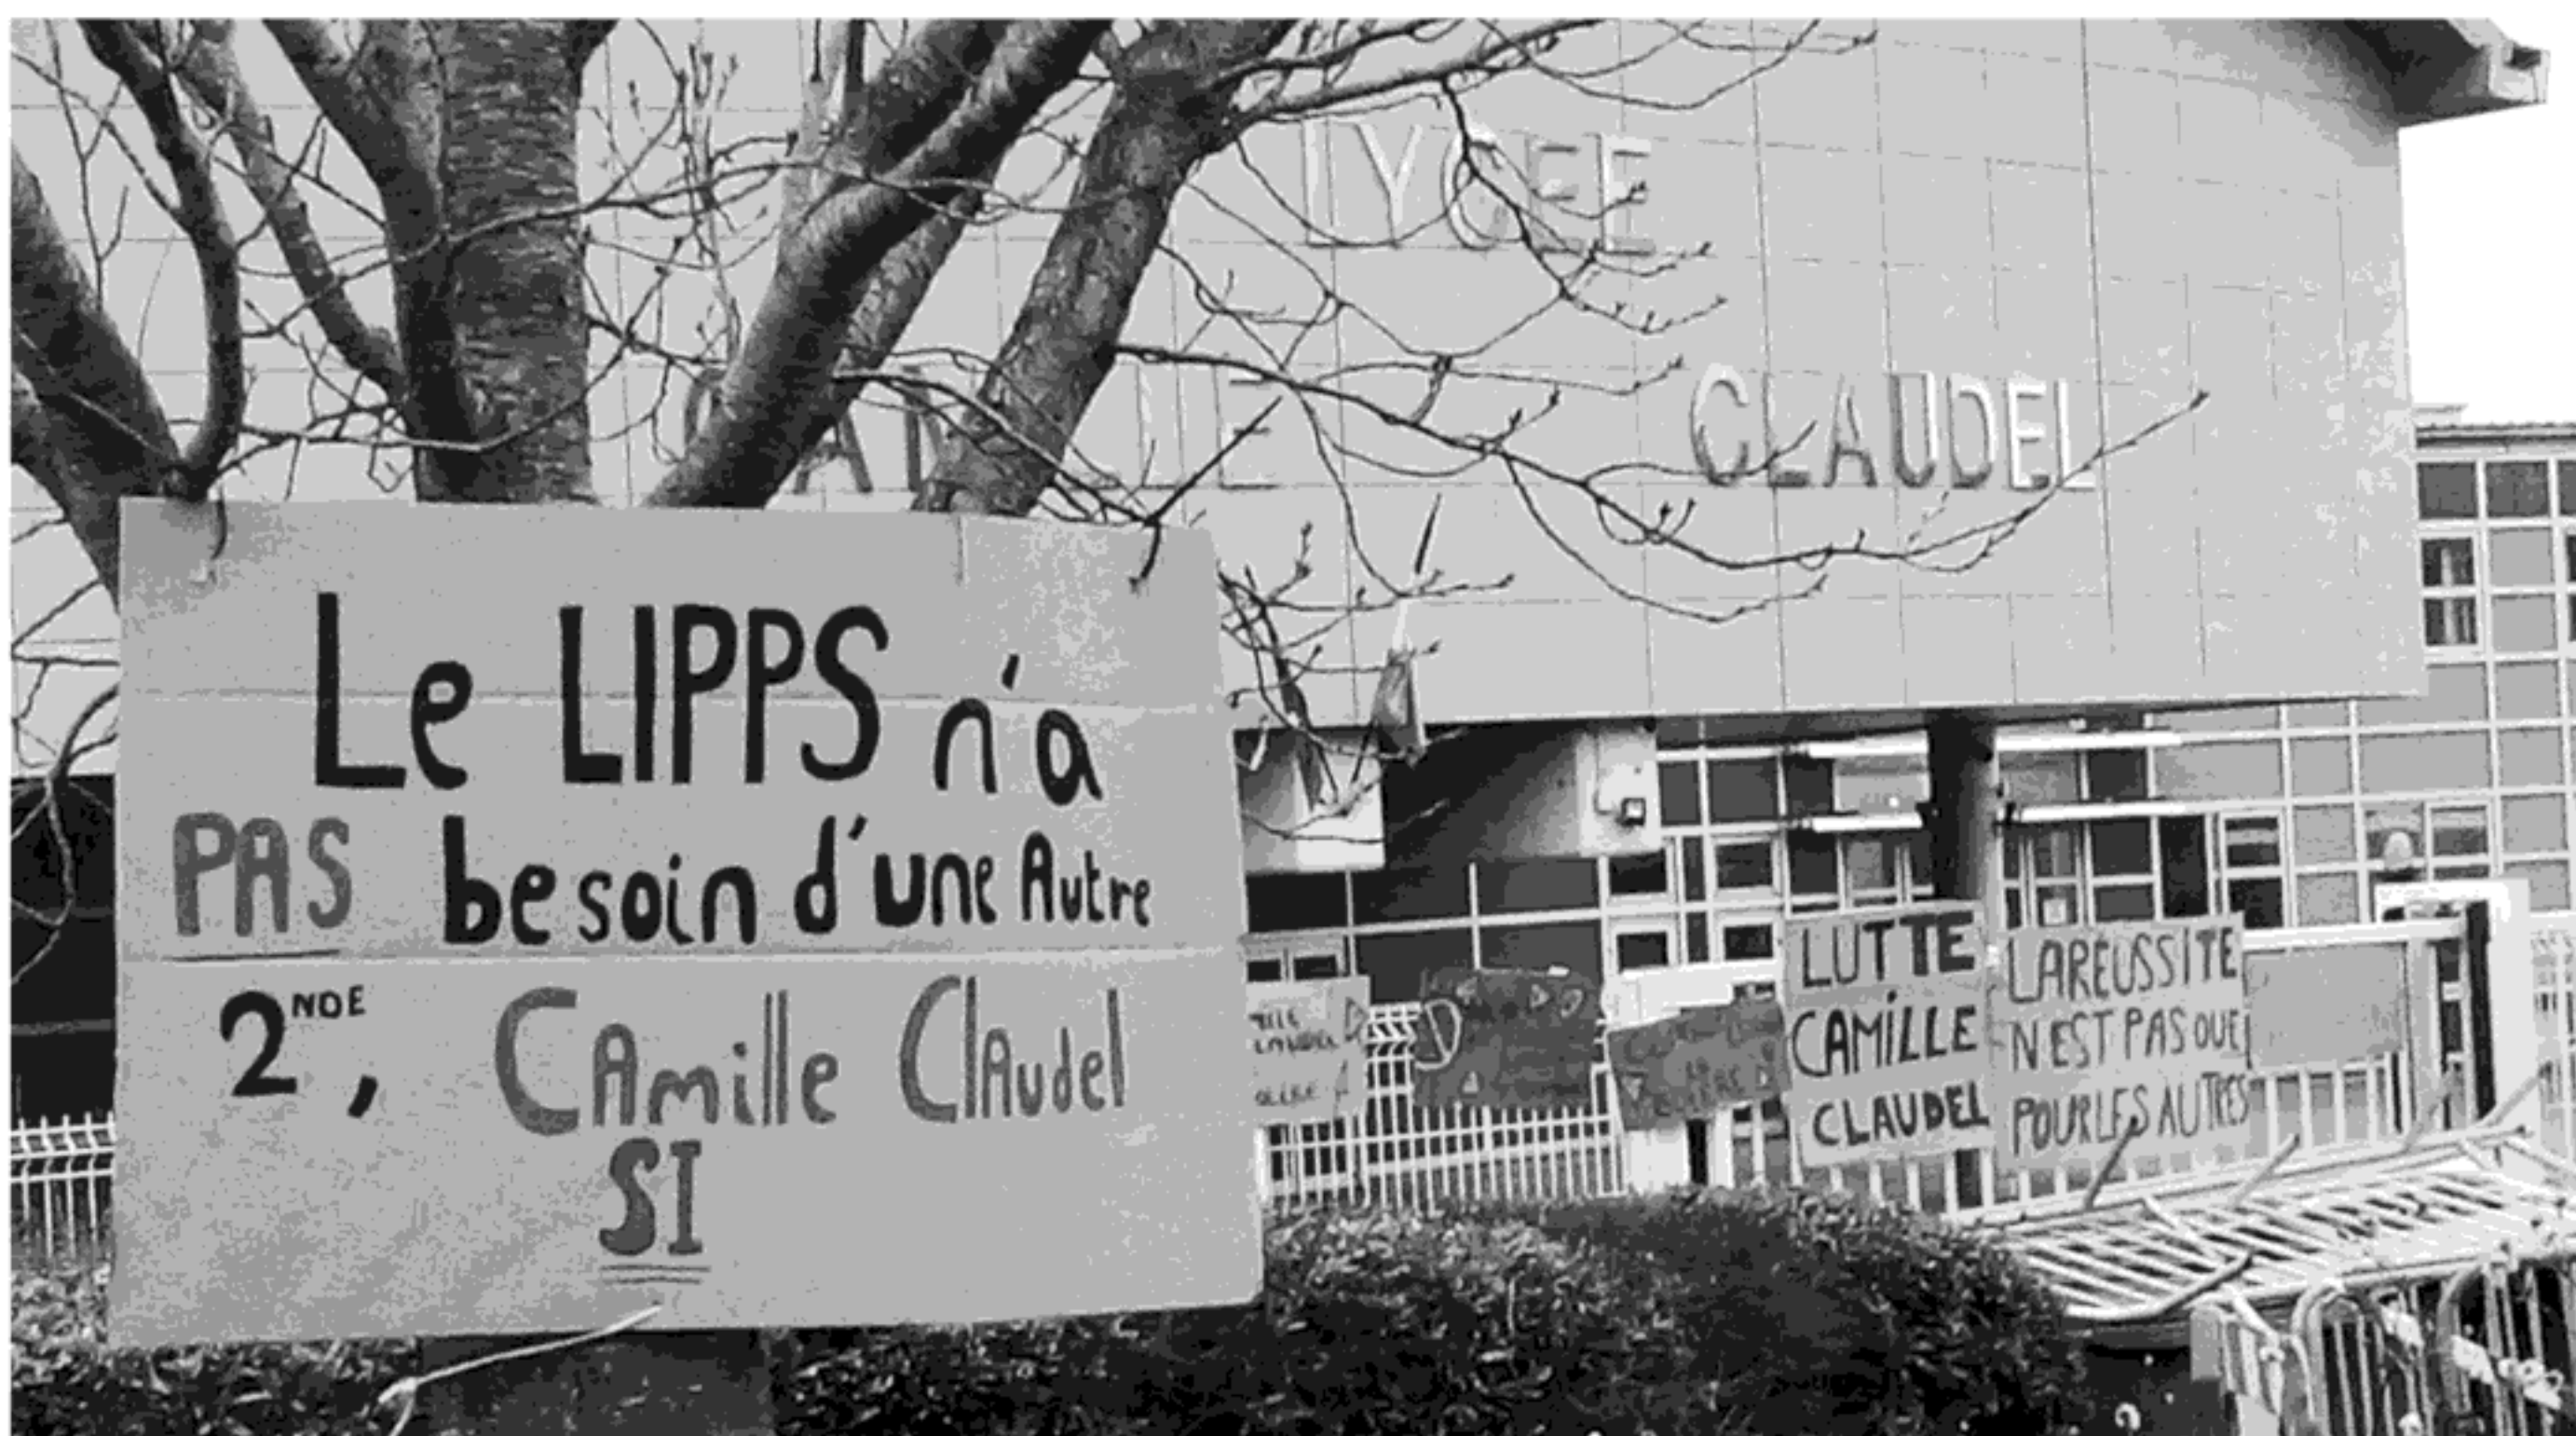 LYCEE
CLAUDEL
Le LIPPS n'a
PAS besoin d'une Autre
2NDE, CAmille ClAudel
SI
LUTTE
CAMiLLE
CLAUDEL
LA REUSSITE
N'EST PAS QUE
POUR LES AUTRES